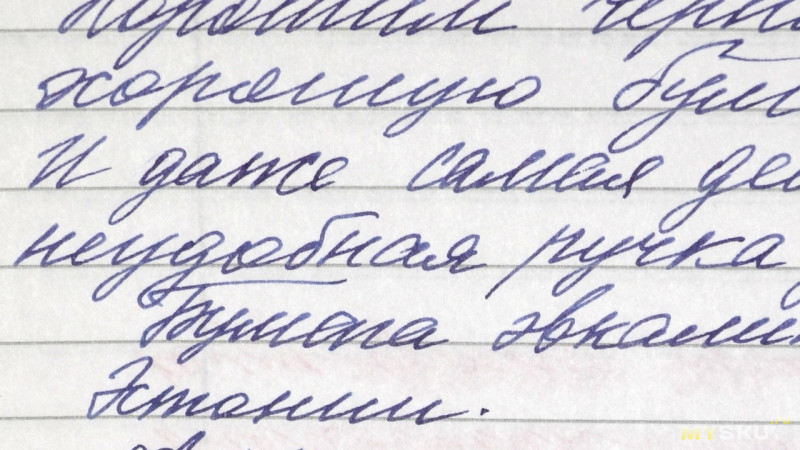 хорошим черн
хорошую бум
И даже самая де
неудобная ручка
Бумага эвкалип
Эстонии.
mySKU